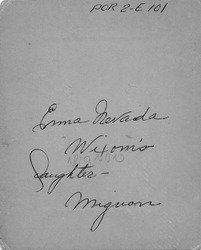 POR 2-E 101
Emma Nevada
Wixom's
Daughter-
Mignon